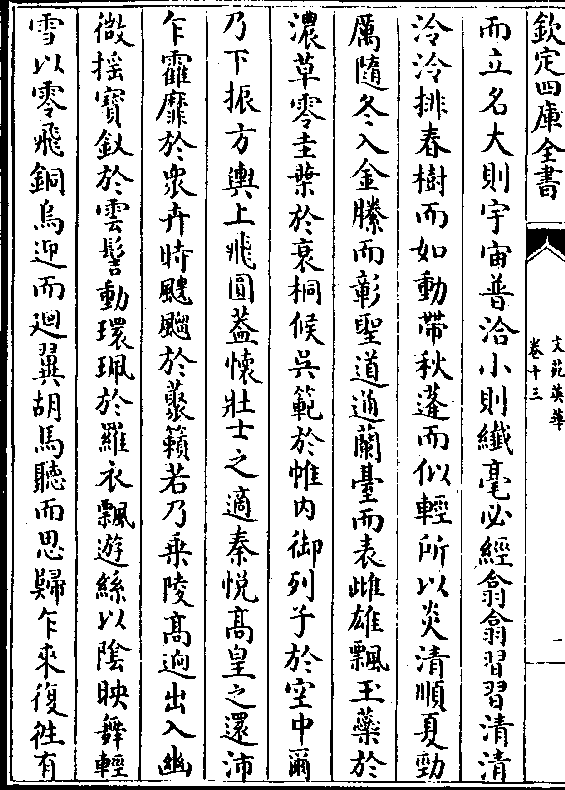 欽定四庫全書
文苑英華
卷十三
一
而立名大則宇宙普洽小則纖毫必經翕翕習習清清
泠泠排春樹而如動帶秋蓬而似輕所以炎清順夏勁
厲隨冬入金縢而彰聖道過蘭臺而表雌雄飄玉藥於
濃草零圭葉於衰桐候吳範於帷内御列子於空中爾
乃下振方輿上飛圓葢懷壯士之適秦悦髙皇之還沛
乍靃靡於衆卉時颼飀於藂籟若乃乗陵髙逈出入幽
微揺寳釵於雲髻動環珮於羅衣飄遊絲以隂映舞輕
雪以零飛銅烏迎而迴翼胡馬聽而思歸乍來復徃有